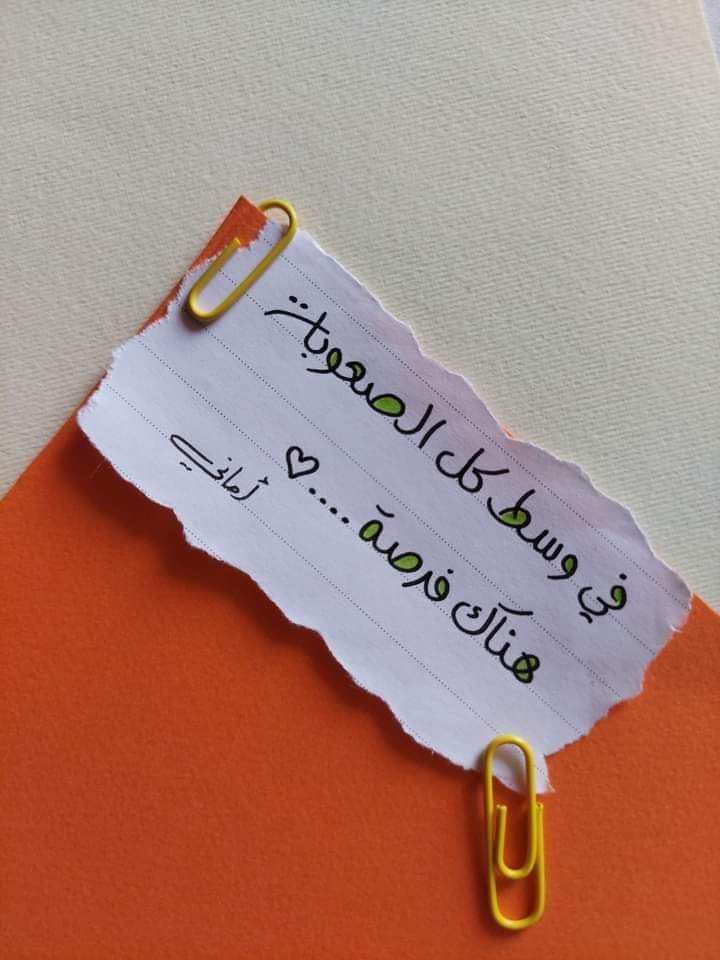 في وسط كل الصعوبات
هناك فرصة.... ♡
أماني